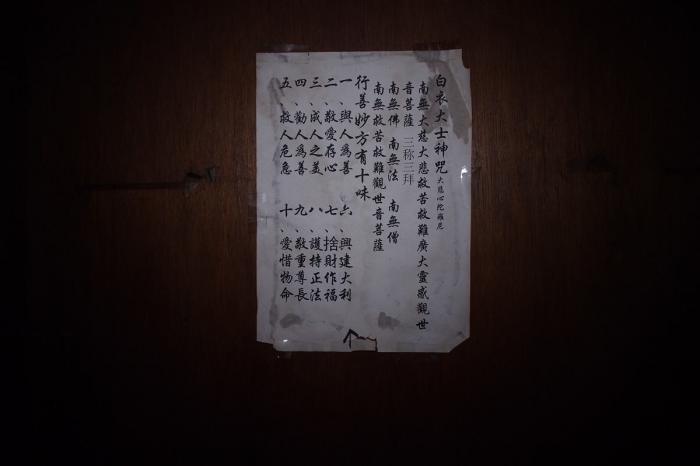 白衣大士神咒 大悲心陀羅尼
南無大慈大悲救苦救難廣大靈感觀世
音菩薩 三称三拜
南無佛 南無法 南無僧
南無救苦救難觀世音菩薩
行善妙方有十味
一、與人為善 六、興建大利
二、敬愛存心 七、捨財作福
三、成人之美 八、護持正法
四、勸人為善 九、敬重尊長
五、救人危急 十、愛惜物命